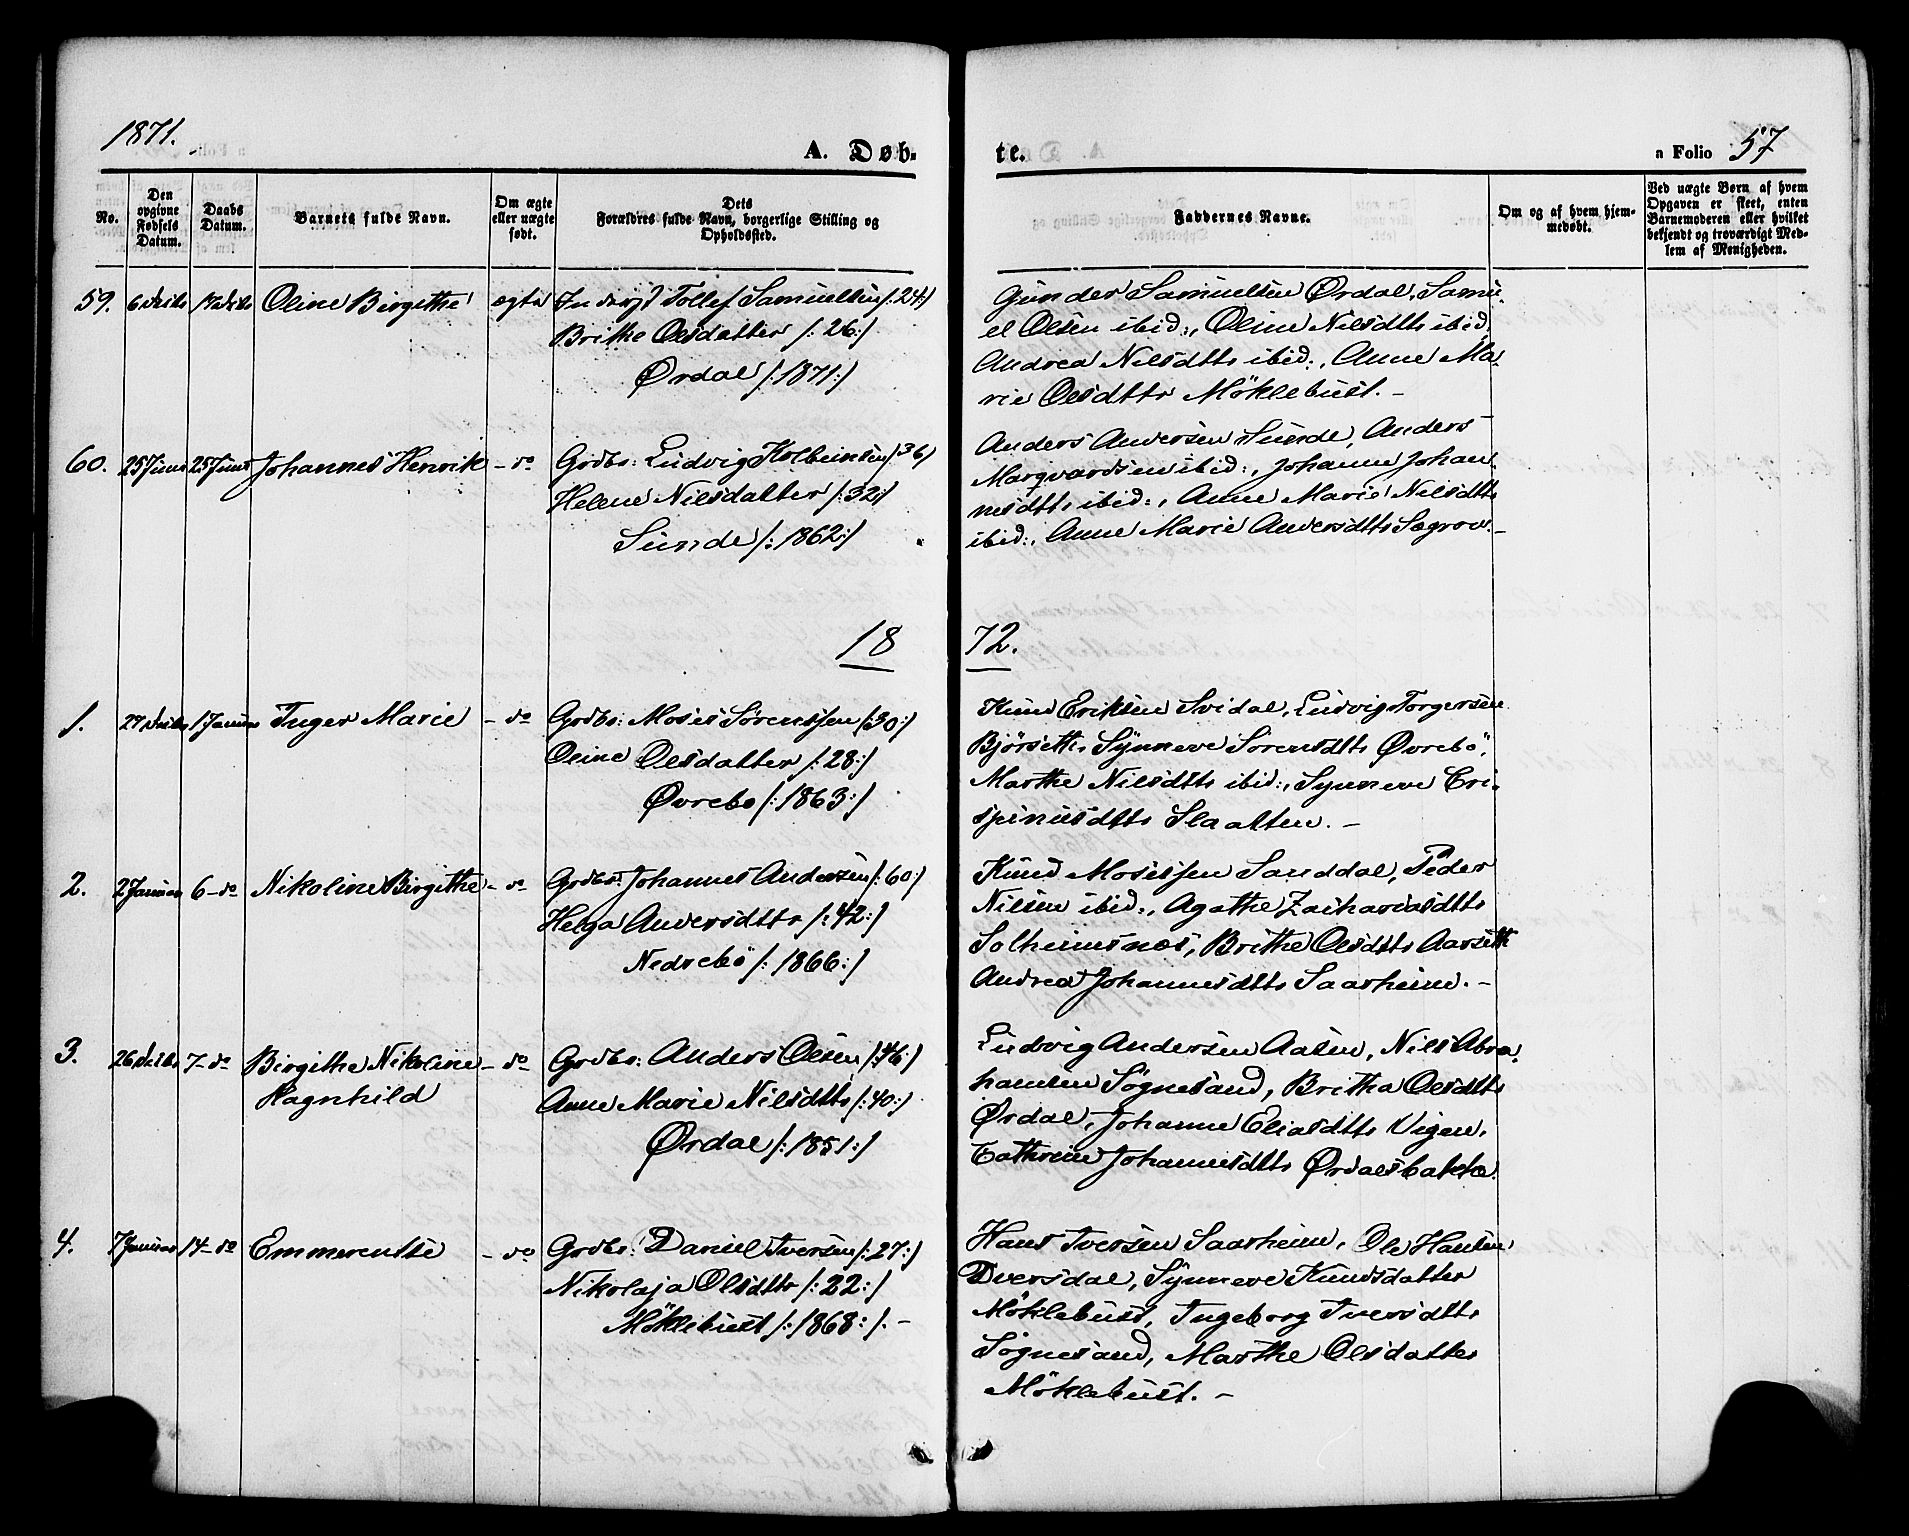 1871.
A. Døb-
te.
n Folio 57
No.
Den opgivne Fødsels Datum.
Daabs Datum.
Barnets fulde Navn.
Om ægte eller uægte født.
Dets Forældres fulde Navn, borgerlige Stilling og Opholdssted.
Faddernes Navne.
Om og af hvem hjemmedøbt.
Ved uægte Børn af hvem Opgaven er skeet, enten Barnemoderen eller hvilket bekjendt og troværdigt Medlem af Menigheden.
59. 6 Decbr Decbr Oline Birgithe ægte Tollef Samuelsen /:24:/
Brithe Olsdatter /:26:/
Ørdal /:1871:/
Gunder Samuelsen Ørdal, Samu-
el Olsen ibid:, Oline Nilsdttr ibid,
Andrea Nilsdttr ibid:, Anne Ma-
rie Olsdttr Möklebust. -
60. 25 Juni 25 Juni Johannes Henrik - do Grdbr: Ludvig Kolbeinsen /36/
Helene Nilsdatter /:32:/
Sunde /:1862:/
Anders Andersen Sunde, Anders
Marqvardsen ibid:, Johanne Johan-
nesdttr ibid:, Anne Marie Nilsdttr
ibid:, Anne Marie Andersdttr Sægrov. -
18 72.
1. 27 Decbr 1 Januar Inger Marie - do Grdbr: Moses Sørenssen /30:/
Oline Olsdatter /:28:/
Øvrebø /:1863:/
Knud Eriksen Svidal, Ludvig Torgersen
Bjørsette, Synneve Sørensdttr Øvrebö,
Marthe Nilsdttr ibid:, Synneve Cri-
spinusdttr Slaatten. -
2. 2 Januar 6 - do Nikoline Birgithe - do Grdbr: Johannes Andersen /:60:/
Helga Andersdttr /:42:/
Nedrebö /:1866:/
Knud Mosessen Sanddal, Peder
Nilsen ibid:, Agathe Zachariasdttr
Solheimsnæs, Brithe Olsdttr Aarseth
Andrea Johannesdttr Saarheim. -
3. 26 Decbr 7 - do Birgithe Nikoline - do Grdbr: Anders Olsen /:46:/
Ragnhild
Anne Marie Nilsdttr /:40:/
Ørdal /:1851:/
Ludvig Andersen Aasen, Nils Abra-
hamsen Sögnesand, Britha Olsdttr
Ørdal, Johanne Eliasdttr Vigen,
Cathrine Johannesdttr Ørdalsbakke.
4. 7 Januar 14 - do Emmerentse - do Grdbr: Daniel Iversen /:27:/
Nikolaja Olsdttr /:22:/
Möklebust /:1868:/. -
Hans Iversen Saarheim, Ole Hansen
Dversdal, Synneve Knudsdatter
Möklebust, Ingeborg Iversdttr
Sögnesand, Marthe Olsdatter
Möklebust. -